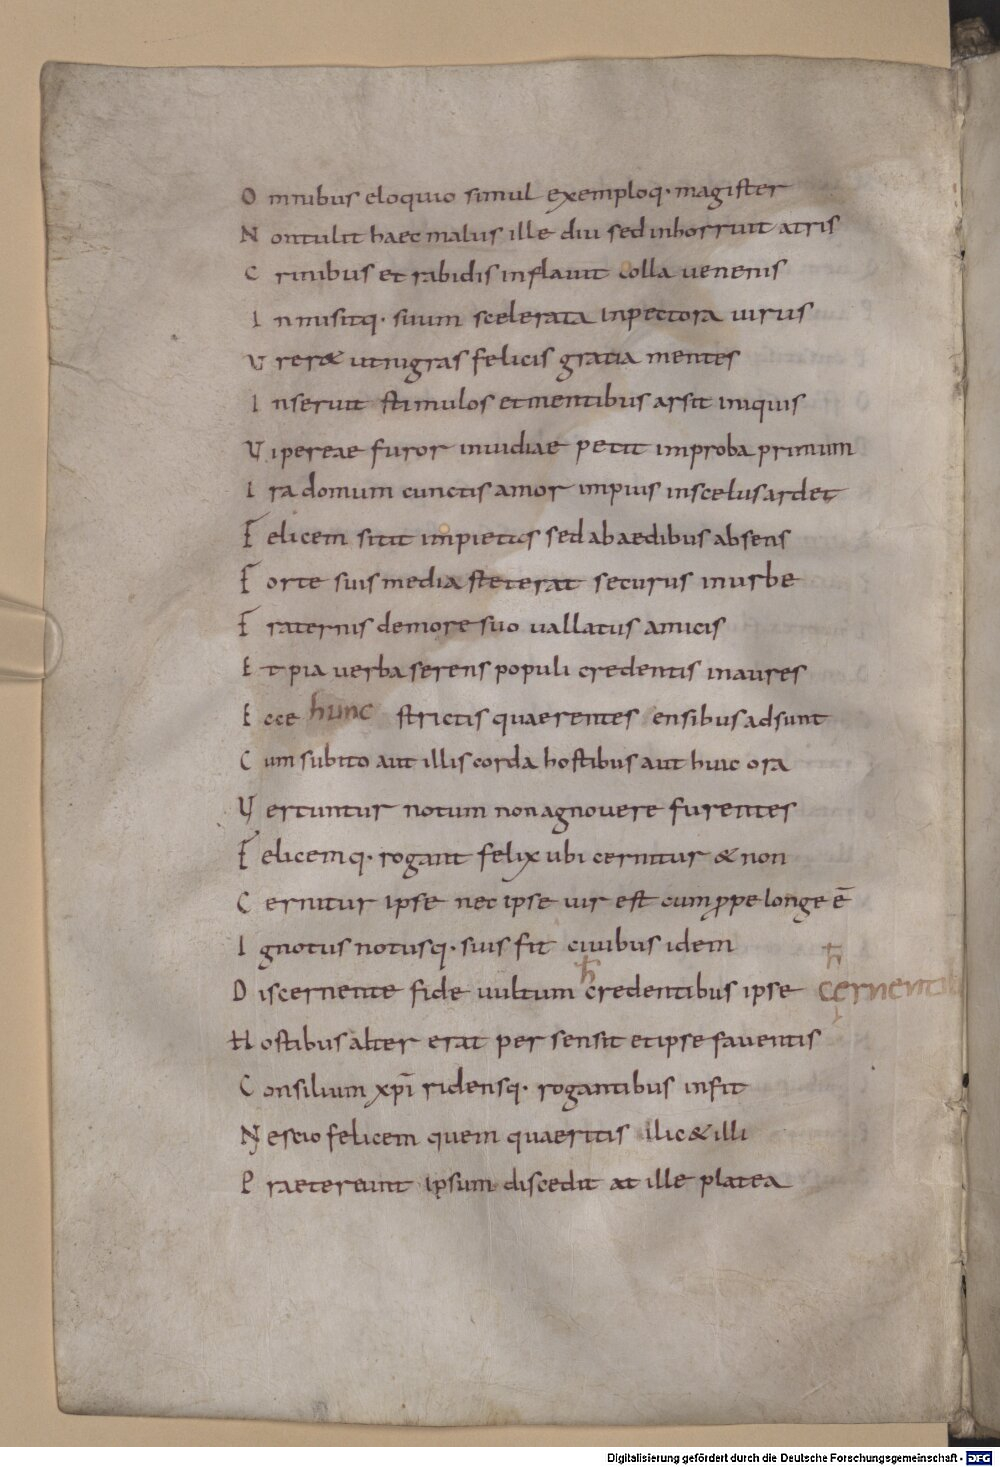 O mnibus eloquio simul exemploq· magister
N ontulit haec malus ille diu sed inhorruit atris
C rinibus et rabidis inflauit colla uenenis
I nmisitq· suum scelerata inpectora uirus
V rer& utnigras felicis gratia mentes
I nseruit stimulos et mentibus arsit iniquis
V ipereae furor inuidiae petit improba primum
I ra domum cunctis amor impius inscelus ardet
F elicem sitit impietas sed ab aedibus absens
F orte suis media steterat securus inurbe
F raternis demore suo uallatus amicis
E t pia uerba serens populi credentis inaures
E cce hunc strictis quaerentes ensibus adsunt
C um subito aut illis corda hostibus aut huic ora
V ertuntur notum non agnouere furentes
F elicemq· rogant felix ubi cernitur & non
C ernitur ipse nec ipse uir est cum ꝓpe longe ē
I gnotus notusq· suis fit ciuibus idem
D iscernente fide uultum credentibus ipse cernentib
H ostibus alter erat per sensit et ipse fauentis
C onsilium xp̄i ridensq· rogantibus infit
N escio felicem quem quaeritis ilic& illi
P raetereunt ipsum discedit at ille platea
Digitalisierung gefördert durch die Deutsche Forschungsgemeinschaft - DFG